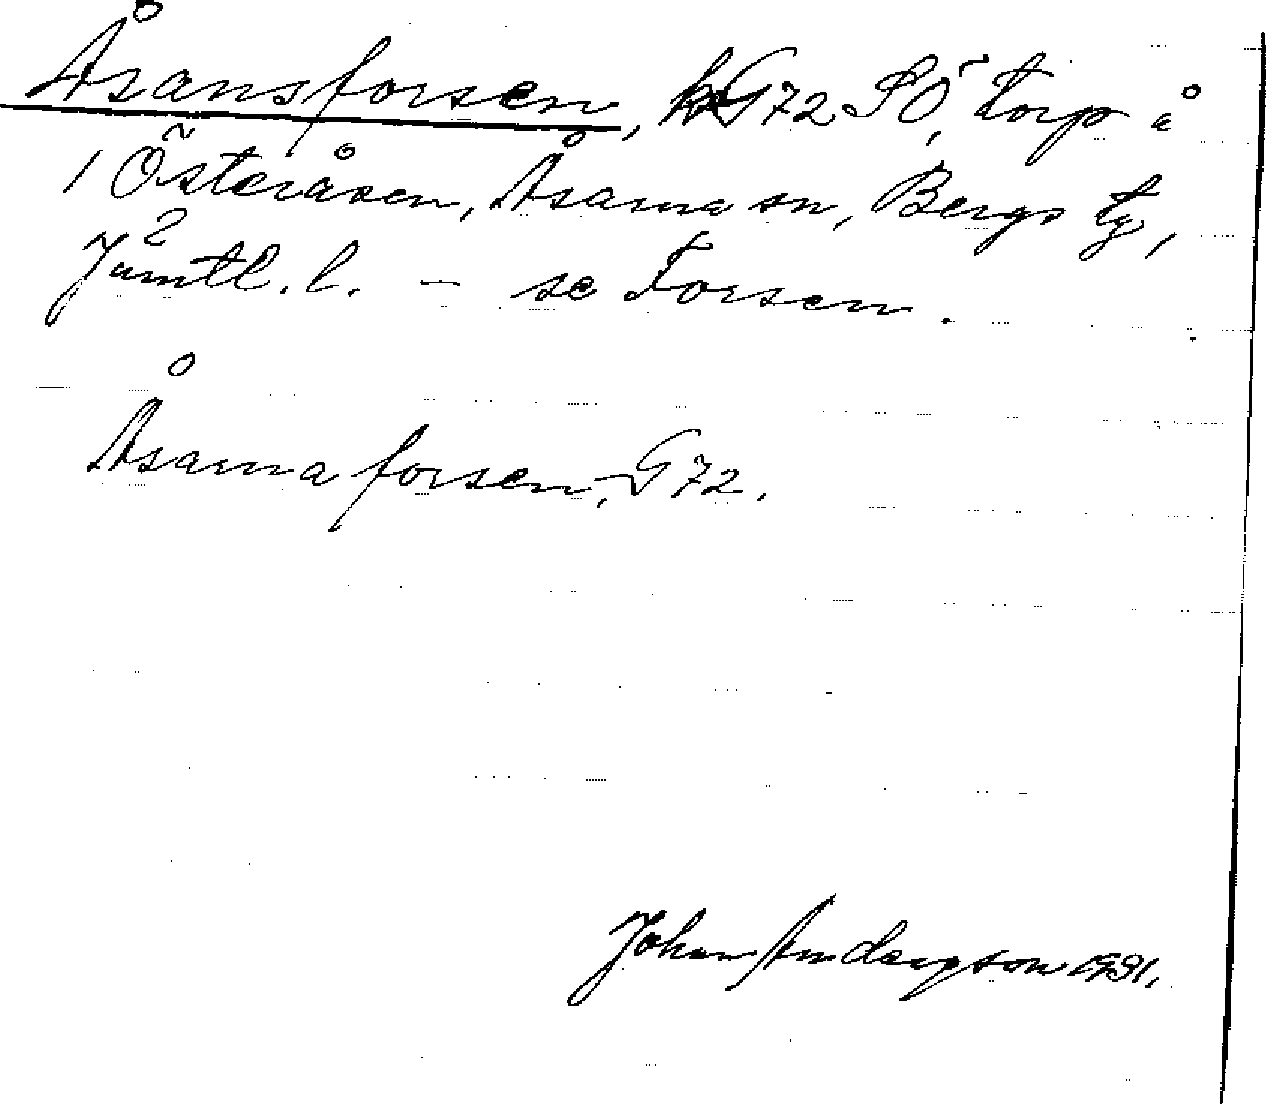 Åsansforsen, G72 SÖ, torp å
1 Österåsen, Åsarna sn, Bergs tg,
2 Jämtl. l. – se Forsen.
Åsarnaforsen, G72.
Johan Anderson 1931.